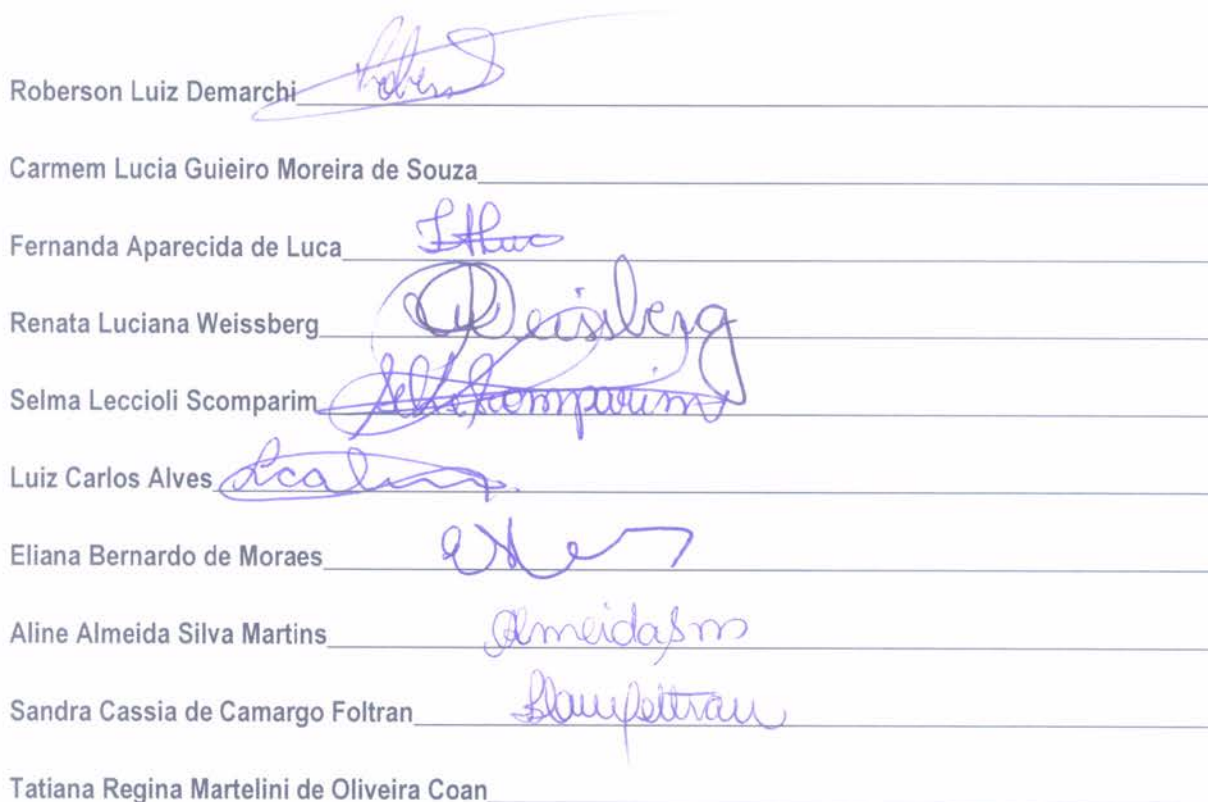 Roberson Luiz Demarchi
Carmem Lucia Guieiro Moreira de Souza
Fernanda Aparecida de Luca
Renata Luciana Weissberg Weissberg
Selma Leccioli Scomparim Scomparim
Luiz Carlos Alves
Eliana Bernardo de Moraes
Aline Almeida Silva Martins AlmeidaSm
Sandra Cassia de Camargo Foltran
Tatiana Regina Martelini de Oliveira Coan